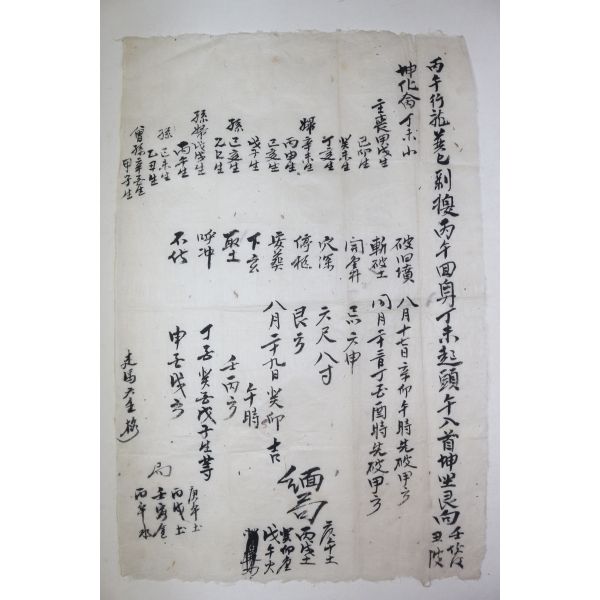 丙午行龍
剝換丙午回身丁未起頭午入首坤坐艮向
壬
丑
坤化命丁未小
主喪甲戌生
己卯生
癸未生
丁亥生
婦辛未生
丙申生
己亥生
戊子生
孫己亥生
乙巳生
孫婦戊戌生
丙午生
孫己未生
乙丑生
曾孫
甲子生
破旧墳 八月十七日辛卯午時先破甲方
斬破土 同月
丁酉時先破甲方
開金井 忌六申
穴深 六尺八寸
停柩 艮方
安葬 八月二十九日癸卯吉
下玄 午時
取土 壬丙方
呼冲 丁
癸
戊子生等
不伏 申
戌方
緬
庚午土
丙戌土
癸卯金
戊午火
走馬六壬
局
庚午土
丙戌土
壬寅金
丙午水